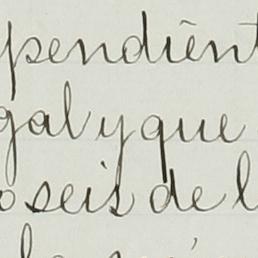 pendient
gal y que
seis de l